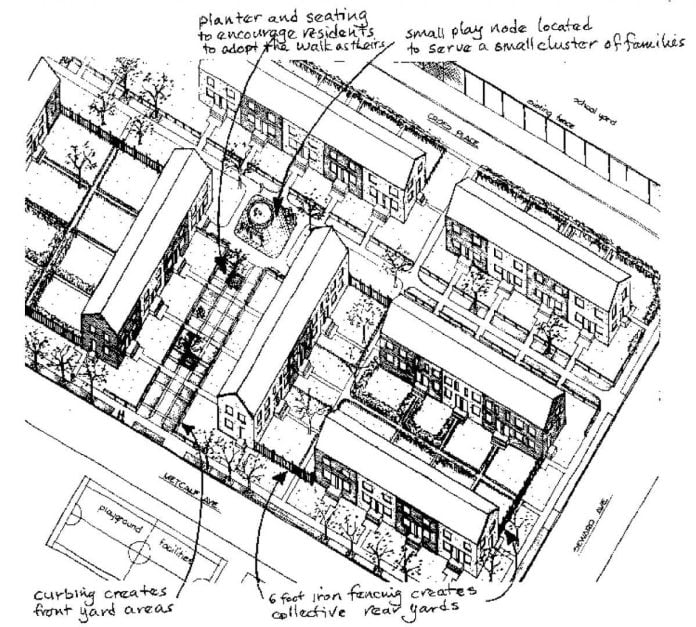 planter and seating
to encourage residents
to adopt the walk as theirs
small play node located
to serve a small cluster of families
school yard
existing fence
CROSS PLACE
METCALF AVE
playground
facilities
SEWARD AVE
curbing creates
front yard areas
6 foot iron fencing creates
collective rear yards